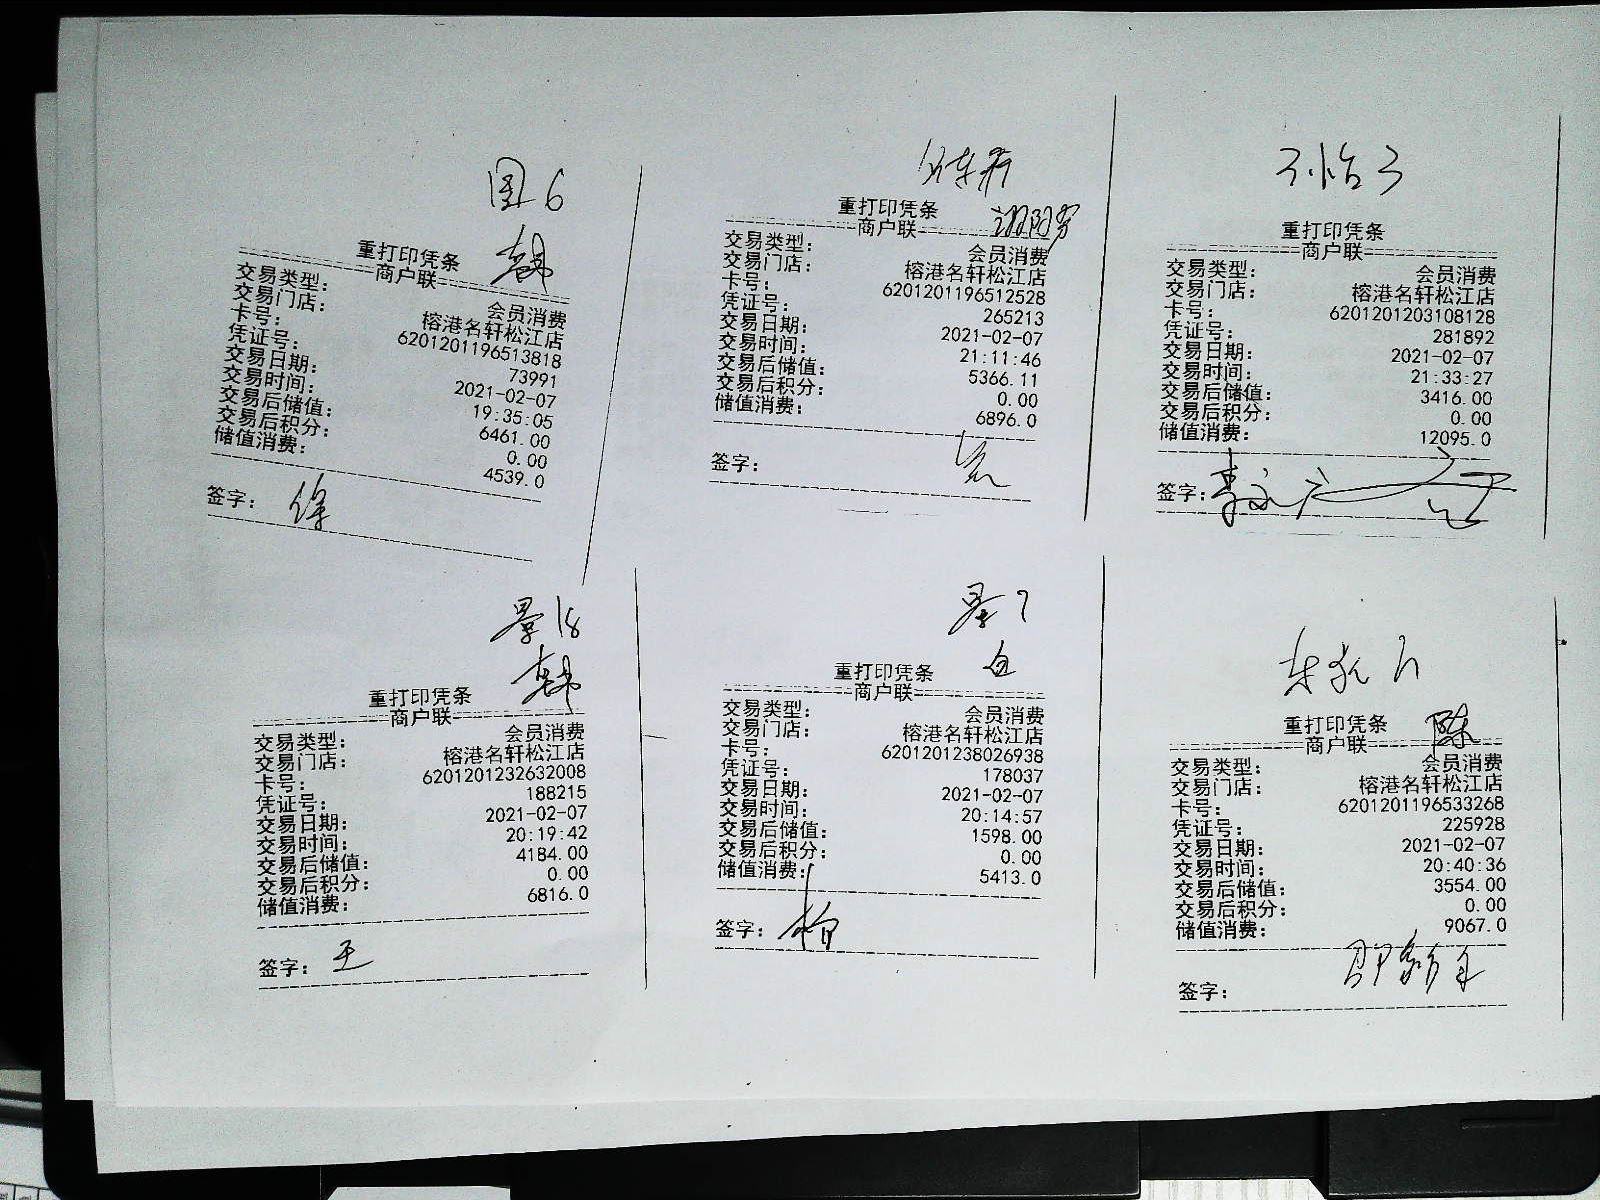 6
重打印凭条
韩
商户联
交易类型: 会员消费
交易门店: 榕港名轩松江店
卡号: 6201201196513818
凭证号: 73991
交易日期: 2021-02-07
交易时间: 19:35:05
交易后储值: 6461.00
交易后积分: 0.00
储值消费: 4539.0
签字: 徐
重打印凭条
商户联
交易类型: 会员消费
交易门店: 榕港名轩松江店
卡号: 6201201196512528
凭证号: 265213
交易日期: 2021-02-07
交易时间: 21:11:46
交易后储值: 5366.11
交易后积分: 0.00
储值消费: 6896.0
签字:
重打印凭条
商户联
交易类型: 会员消费
交易门店: 榕港名轩松江店
卡号: 6201201203108128
凭证号: 281892
交易日期: 2021-02-07
交易时间: 21:33:27
交易后储值: 3416.00
交易后积分: 0.00
储值消费: 12095.0
签字:
景18
韩
重打印凭条
商户联
交易类型: 会员消费
交易门店: 榕港名轩松江店
卡号: 6201201232632008
凭证号: 188215
交易日期: 2021-02-07
交易时间: 20:19:42
交易后储值: 4184.00
交易后积分: 0.00
储值消费: 6816.0
签字: 王
景7
白
重打印凭条
商户联
交易类型: 会员消费
交易门店: 榕港名轩松江店
卡号: 6201201238026938
凭证号: 178037
交易日期: 2021-02-07
交易时间: 20:14:57
交易后储值: 1598.00
交易后积分: 0.00
储值消费: 5413.0
签字:
重打印凭条
陈
商户联
交易类型: 会员消费
交易门店: 榕港名轩松江店
卡号: 6201201196533268
凭证号: 225928
交易日期: 2021-02-07
交易时间: 20:40:36
交易后储值: 3554.00
交易后积分: 0.00
储值消费: 9067.0
签字: